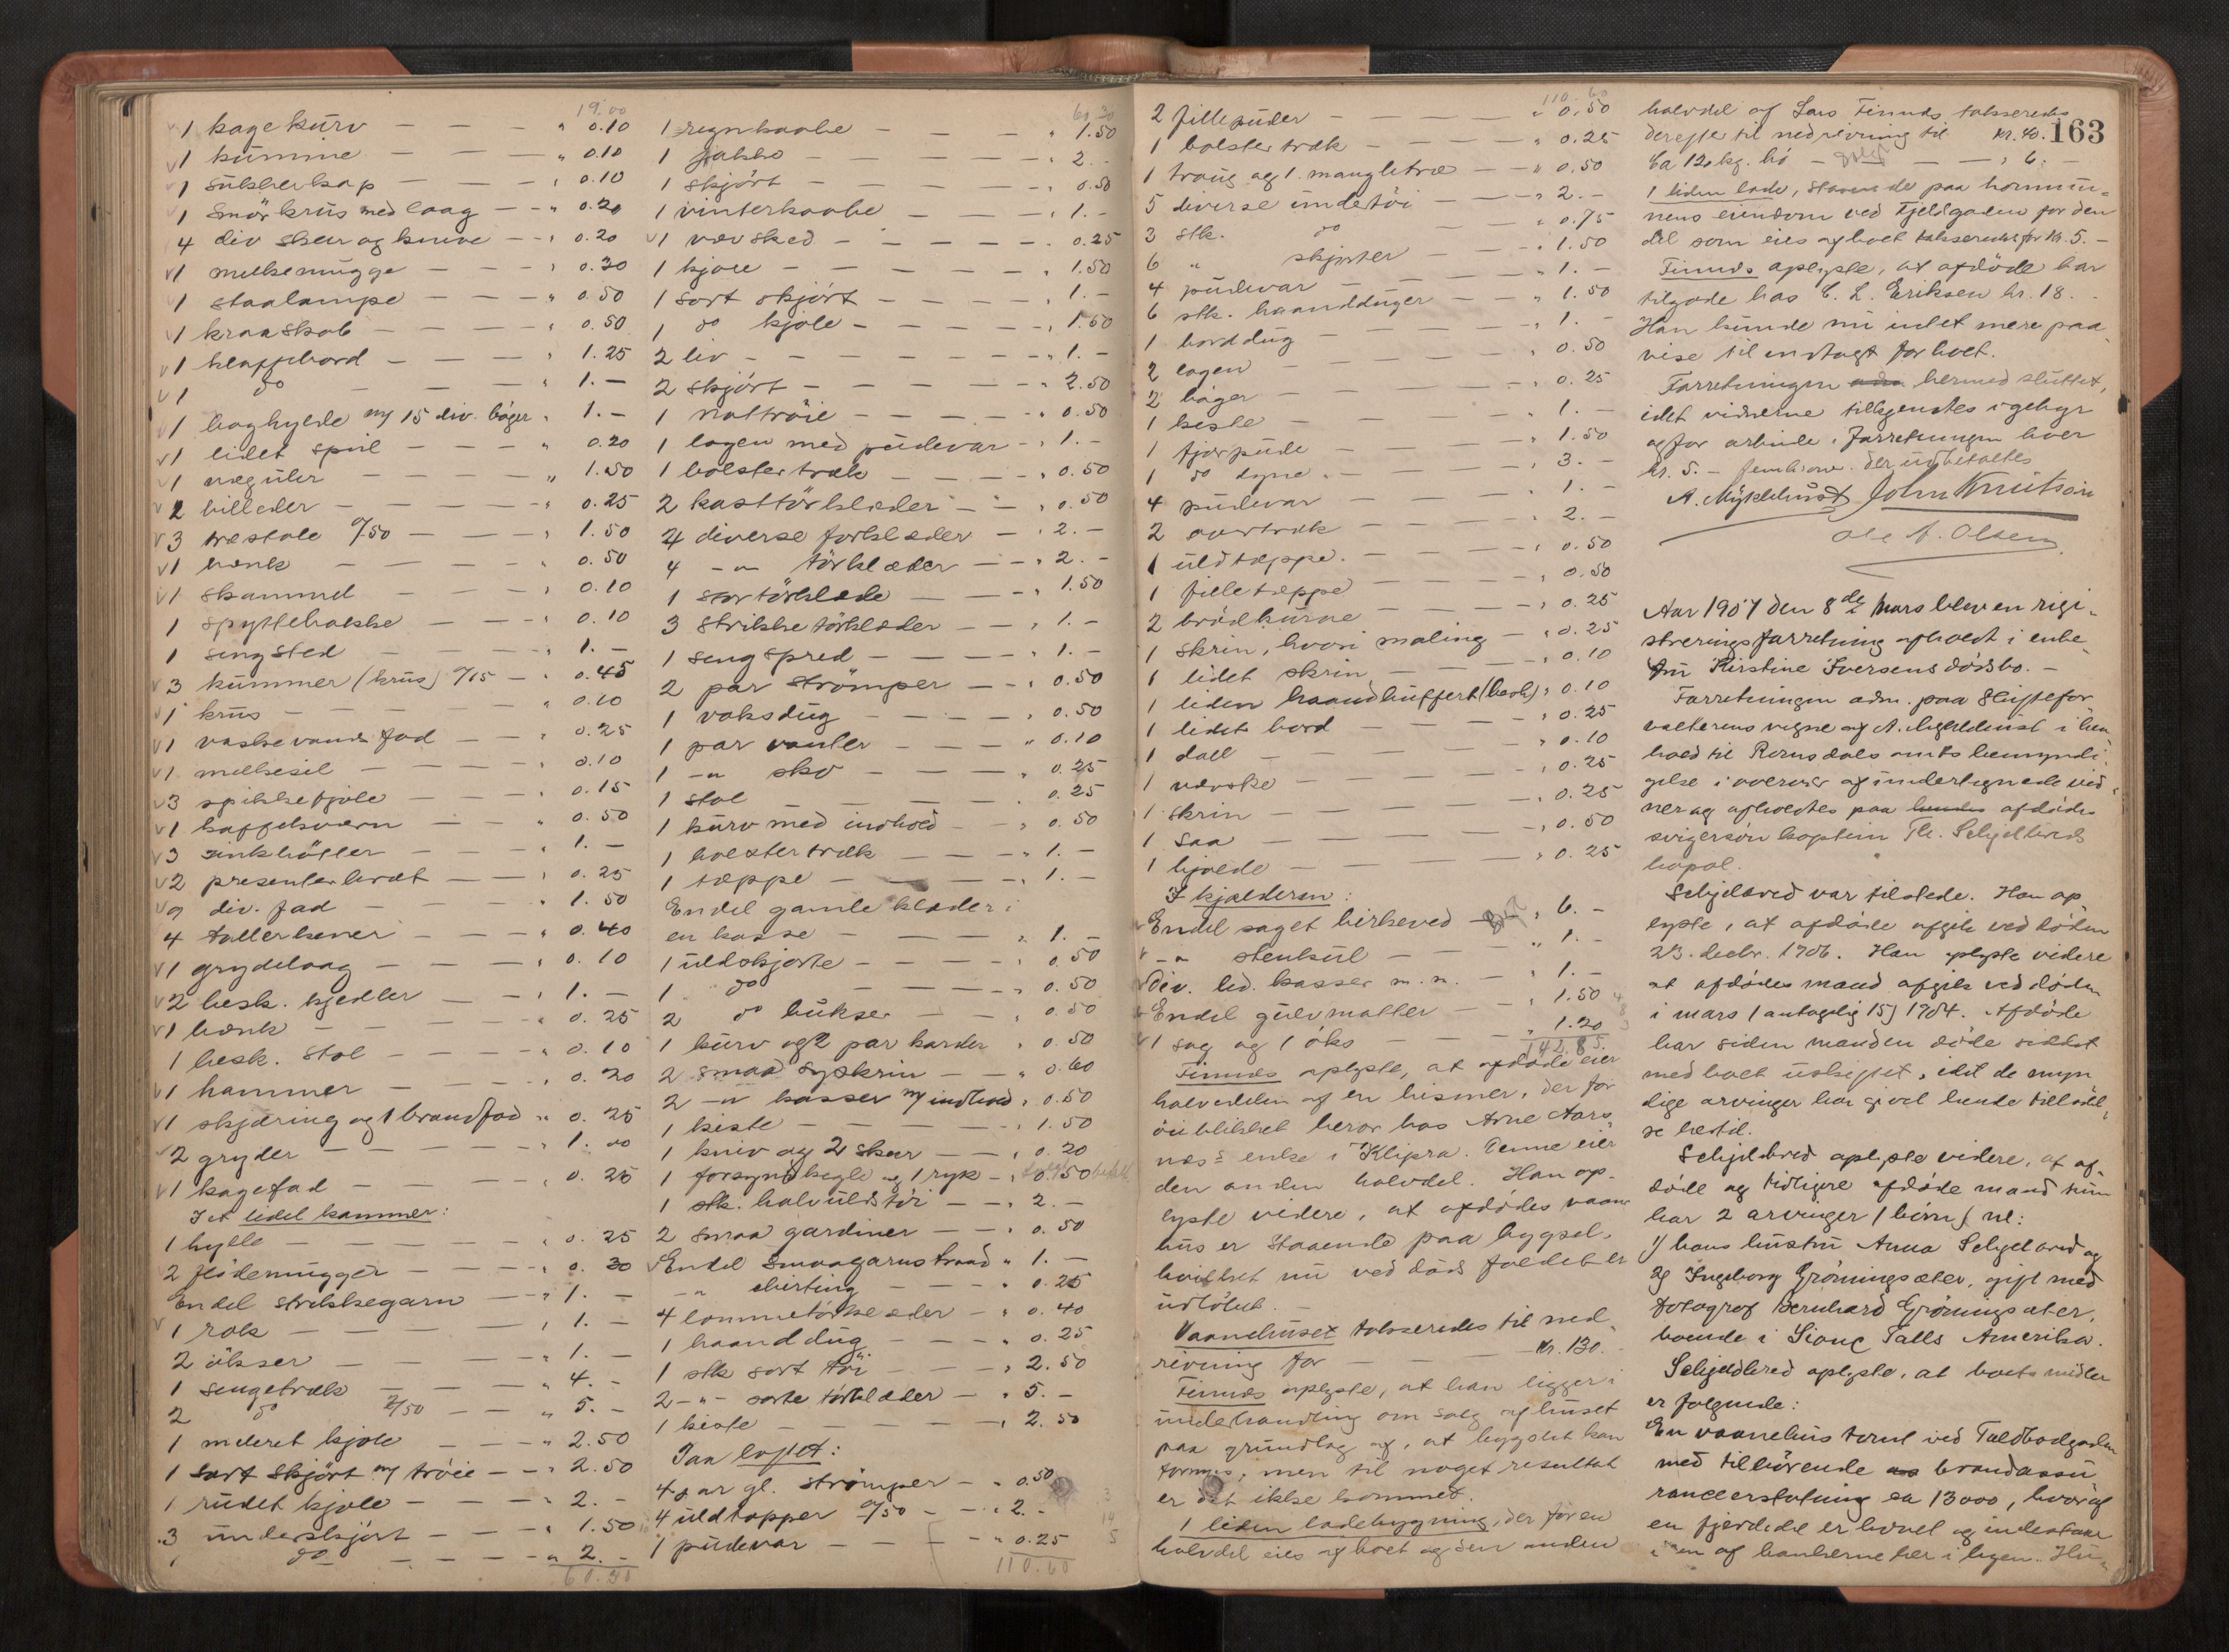 19.00
1 kagekurv — — — " 0.10
1 kumme — — — " 0.10
1 sukkerkop — — — " 0.10
1 smörkrus med laag — — " 0.20
4 div skeer og knive — — " 0.20
1 melkemugge — — — " 0.30
1 staalampe — — — " 0.50
1 kraaskab — — — " 0.50
1 klaffebord — — — " 1.25
1 do — — — " 1.—
1 boghylde m/ 15 div. böger " 1.—
1 lidet speil — — — " 0.20
1 væguhr — — — " 1.50
2 billeder — — — " 0.25
3 træstole a/50 — — " 1.50
1 bænk — — — " 0.50
1 skammel — — — " 0.10
1 spyttebakke — — — " 0.10
1 sengsted — — — " 1.—
3 kummer (krus) a/15 — " 0.45
1 krus — — — " 0.10
1 vaskevandsfad — — " 0.25
1 melkesil — — — " 0.10
3 spikkefjöle — — — " 0.15
1 kaffekværn — — — " 0.50
3 sinkbötter — — — " 1.—
2 presenterbræt — — " 0.25
9 div. fad — — — " 1.50
4 tallerkener — — — " 0.40
1 grydelaag — — — " 0.10
2 besk. kjedler — — " 1.—
1 bænk — — — " 0.25
1 besk. stol — — — " 0.10
1 hammer — — — " 0.20
1 skjæring og 1 brandfad " 0.25
2 gryder — — — " 1.00
1 kagefad — — — " 0.25
I et lidet kammer:
1 hylle — — — " 0.25
2 flödemugger — — " 0.30
Endel strikkegarn — — " 1.—
1 rok — — — " 1.—
2 økser — — — " 1.—
1 sengetræk — — — " 4.—
2 do 2/50 — — " 5.—
1 meleret kjole — — " 2.50
1 sort skjört m/ tröie — " 2.50
1 rudet kjole — — " 2.—
3 underskjört — — " 1.50
1 do — — — " 2.—
60.30
60.30
1 regnkaabe — — — " 1.50
1 jakke — — — " 2.—
1 skjört — — — " 0.50
1 vinterkaabe — — — " 1.—
1 vævsked — — — " 0.25
1 kjole — — — " 1.50
1 sort skjört — — — " 1.—
1 do kjole — — — " 1.50
2 liv — — — " 1.—
2 skjört — — — " 2.50
1 nattröie — — — " 0.50
1 lagen med pudevar — " 1.—
1 bolstertræk — — — " 0.50
2 kasttörklæder — — " 0.50
4 diverse forklæder — " 2.—
4 —"— törklæder — — " 2.—
1 stortörklæde — — " 1.50
3 strikketörklæder — — " 1.—
1 sengspred — — — " 1.—
2 par strömper — — " 0.50
1 voksdug — — — " 0.50
1 par vanter — — — " 0.10
1 —"— sko — — — " 0.25
1 stol — — — " 0.25
1 kurv med indhold — " 0.50
1 bolstertræk — — — " 1.—
1 tæppe — — — " 1.—
Endel gamle klæder i
en kasse — — — " 1.—
1 uldskjorte — — — " 0.50
1 do — — — " 0.50
2 do bukser — — " 0.50
1 kurv og 2 par karder " 0.50
2 smaa syskrin — — " 0.60
2 —"— kasser m/ indhold " 0.50
1 kiste — — — " 1.50
1 kniv og 2 skeer — — " 0.20
1 forsynskegle og 1 ryk — " 0.50
1 stk. halvuldstöi — — " 2.—
2 smaa gardiner — — " 0.50
Endel smaagarnstraad " 1.—
—"— shirting — — " 0.25
4 lommetörklæder — " 0.40
1 haanddug — — — " 0.25
1 stk sort töi — — " 2.50
2 —"— sorte törklæder — " 5.—
1 kiste — — — " 2.50
Paa loftet:
4 par gl. strömper — " 0.50
4 uldtæpper a/50 — — " 2.—
1 pudevar — — — " 0.25
110.60
110.60
2 fillepuder — — — " 0.50
1 bolstertræk — — — " 0.25
1 traug og 1 mangletræ — — " 0.50
5 diverse undertöi — — " 2.—
3 stk. do — — " 0.75
6 " skjorter — — " 1.50
4 pudevar — — — " 1.—
6 stk. haandduger — — " 1.50
1 borddug — — — " 1.—
2 lagen — — — " 0.50
2 böger — — — " 0.25
1 kiste — — — " 1.—
1 fjærpude — — — " 1.50
1 do dyne — — — " 3.—
4 pudevar — — — " 1.—
2 overtræk — — — " 2.—
1 uldtæppe — — — " 0.50
1 filletæppe — — — " 0.50
2 brödkurve — — — " 0.25
1 skrin, hvori maling — " 0.25
1 lidet skrin — — — " 0.10
1 liden haandkuffert (besk) " 0.10
1 lidet bord — — — " 0.25
1 dall — — — " 0.10
1 væske — — — " 0.25
1 skrin — — — " 0.25
1 saa — — — " 0.50
1 bjælde — — — " 0.25
I kjælderen:
Endel saget birkeved — " 6.—
—"— stenkul — — " 1.—
Div. led. kasser m.m. — " 1.—
Endel gulvmatter — — " 1.50
1 sag og 1 öks — — " 1.20
142.85
Finnds oplyste, at afdöde eier
halvdelen af en bismer, der for
öieblikket beror hos Arne Aars
næs's enke i Klipra. Denne eier
den anden halvdel. Han op-
lyste videre, at afdödes vaane
hus er staaende paa bygsel,
hvilket nu ved döds faldet er
udlöbet.
Vaanehuset takseredes til ned-
rivning for — — — kr. 130.—
Finnds oplyste, at han ligger i
underhandling om salg af huset
paa grundlag af, at bygslet kan
fornyes, men til noget resultat
er det ikke kommet.
1 liden ladebygning, der for en
halvdel eies af boet og den anden
163
halvdel af Lars Finnds takseredes
derefter til nedrivning til kr. 40.
Ca 120 kg. hö — — — " 6.—
1 liden lade, staaende paa kommu-
nens eiendom ved Fjeldgaden for den
del som eies af boet takseredes for kr. 5.—
Finnds oplyste, at afdöde har
tilgode hos C. L. Eriksen kr. 18.—
Han kunde nu intet mere paa
vise til indtægt for boet.
Forretningen hermed sluttet,
idet vidnerne tilkjendtes i gebyr
og for arbeide i forretningen hver
kr. 5.— fem kroner der udbetaltes
A. Myklebust John Knutson
Ole A. Olsen
Aar 1907 den 8de Mars blev en regi-
streringsforretning afholdt i enke-
fru Kirstine Iversens dödsbo.—
Forretningen adm. paa skiftefor
valterens vegne af A. Myklebust i hen
hold til Romsdals amts bemyndi-
gelse i overvær af undertegnede vid-
ner og afholdtes paa hendes afdödes
svigersön kaptein Th. Schjelbreds
bopæl.
Schjelbred var tilstede. Han op
lyste, at afdöde afgik ved döden
23. decbr. 1906. Han oplyste videre
at afdödes mand afgik ved döden
i mars (antagelig 15) 1904. Afdöde
har siden manden döde siddet
med boet uskiftet, idet de myn
dige arvinger har givet hende tilladel-
se hertil.
Schjelbred oplyste videre, at af-
döde og tidligere afdöde mand kun
har 2 arvinger (börn) nl:
1) hans hustru Anna Schjelbred og
2) Ingeborg Grönningsæter, gift med
fotograf Bernhard Grönningsæter,
boende i Sioux Falls Amerika.
Schjeldbred oplyste, at boets midler
er fölgende:
En vaanehus tomt ved Toldbodgaden
med tilhörende brandassu
ranceerstatning ca 13000, hvoraf
en fjerdedel er hævet og indestaar
i en af bankerne her i byen. Hu-